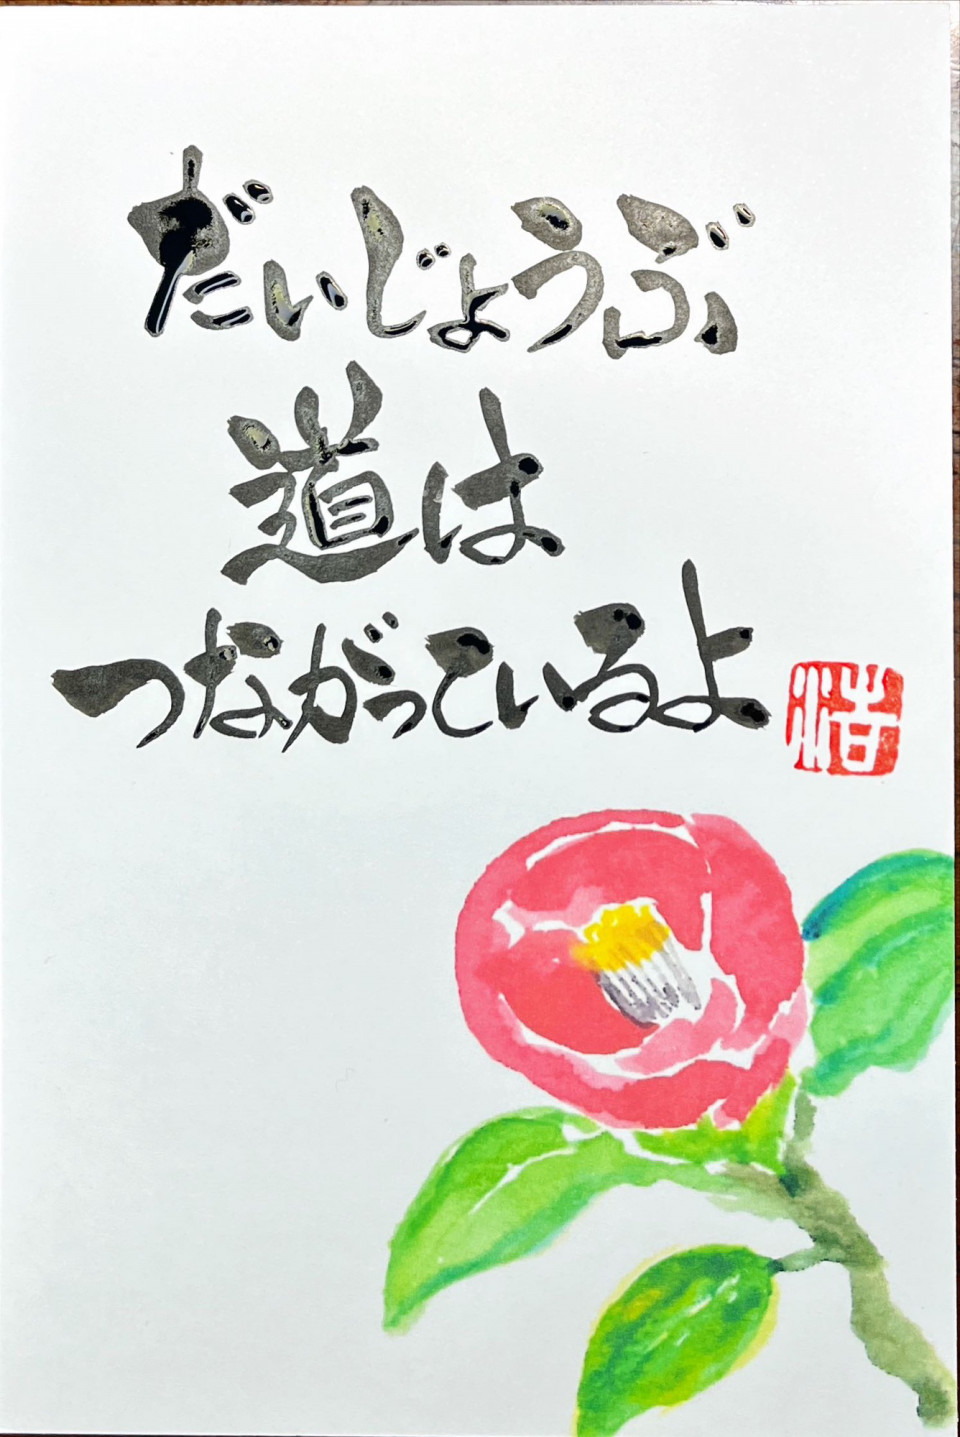 だいじょうぶ
道は
つながっているよ